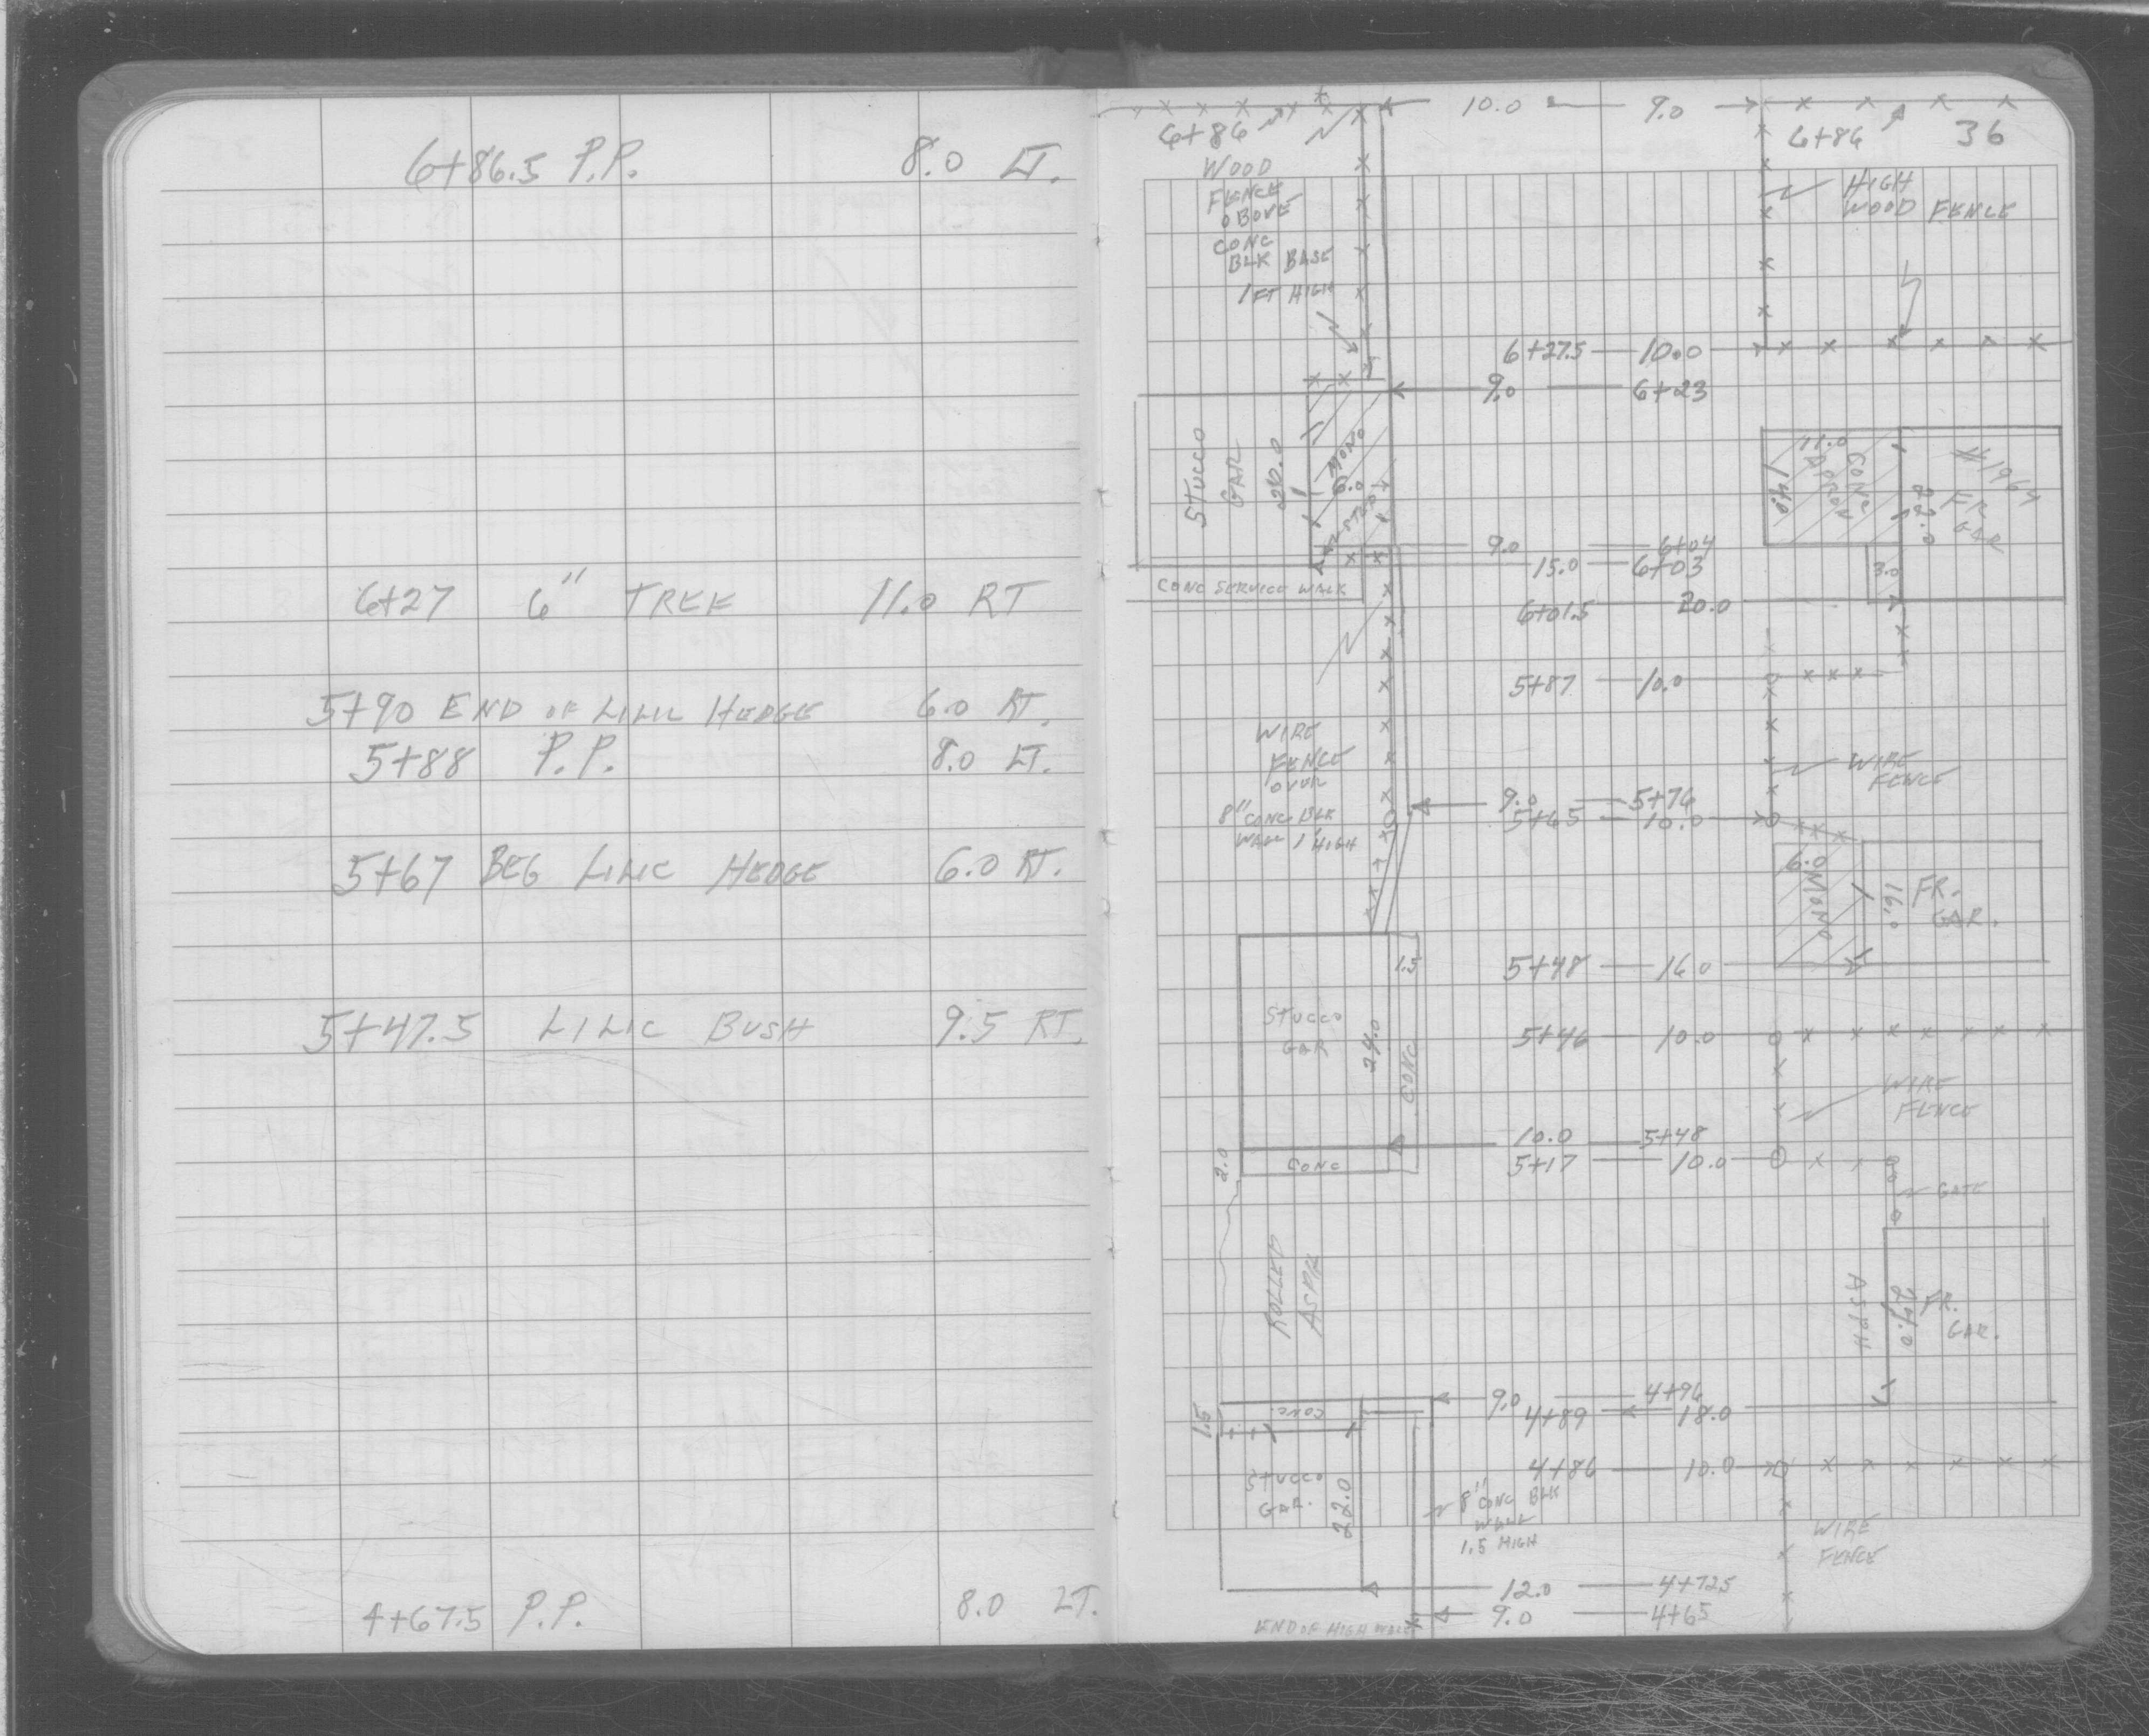 6+86.5 P.P. 8.0 LT.
6+27 6" TREE 11.0 RT
5+90 END OF LILIC HEDGE 6.0 RT.
5+88 P.P. 8.0 LT.
5+67 BEG LILIC HEDGE 6.0 RT.
5+47.5 LILIC BUSH 9.5 RT.
4+67.5 P.P. 8.0 LT.
10.0 9.0
6+86 6+86 36
WOOD
FENCE
OBOVE
CONC
BLK BASE
1 FT HIGH
HIGH
WOOD FENCE
6+27.5 10.0
9.0 6+23
STUCCO
GAR
MONO
6.0
11.0
CONC
APRON
#1964
FR
GAR
22.0
3.0
9.0 6+04
15.0 6+03
CONC SERVICE WALK
6+01.5 20.0
5+87 10.0
WIRE
FENCE
OVER
8" CONC BLK
WALL 1' HIGH
WIRE
FENCE
9.0 5+76
5+65 10.0
6.0
MONO
16.0
FR.
GAR.
1.5
5+48 16.0
STUCCO
GAR
24.0
CONC
5+46 10.0
WIRE
FENCE
10.0 5+48
5+17 10.0
2.0
CONC
GATE
ROLLED
ASPH
ASPH
24.0
FR.
GAR.
9.0 4+96
4+89 18.0
1.5
CONC.
4+86 10.0
STUCCO
GAR.
22.0
8" CONC BLK
WALL
1.5 HIGH
WIRE
FENCE
12.0 4+72.5
9.0 4+65
END OF HIGH WALL